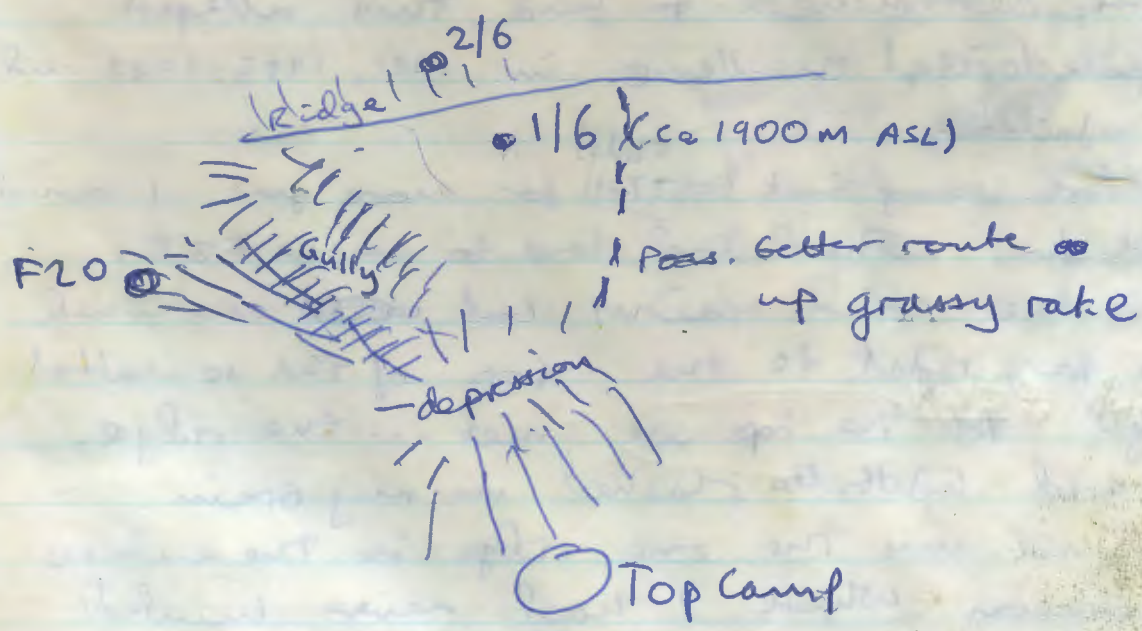 2/6
Ridge
1/6 (ca 1900m ASL)
Gully
F20
Poss. better route
up grassy rake
depression
Top Camp